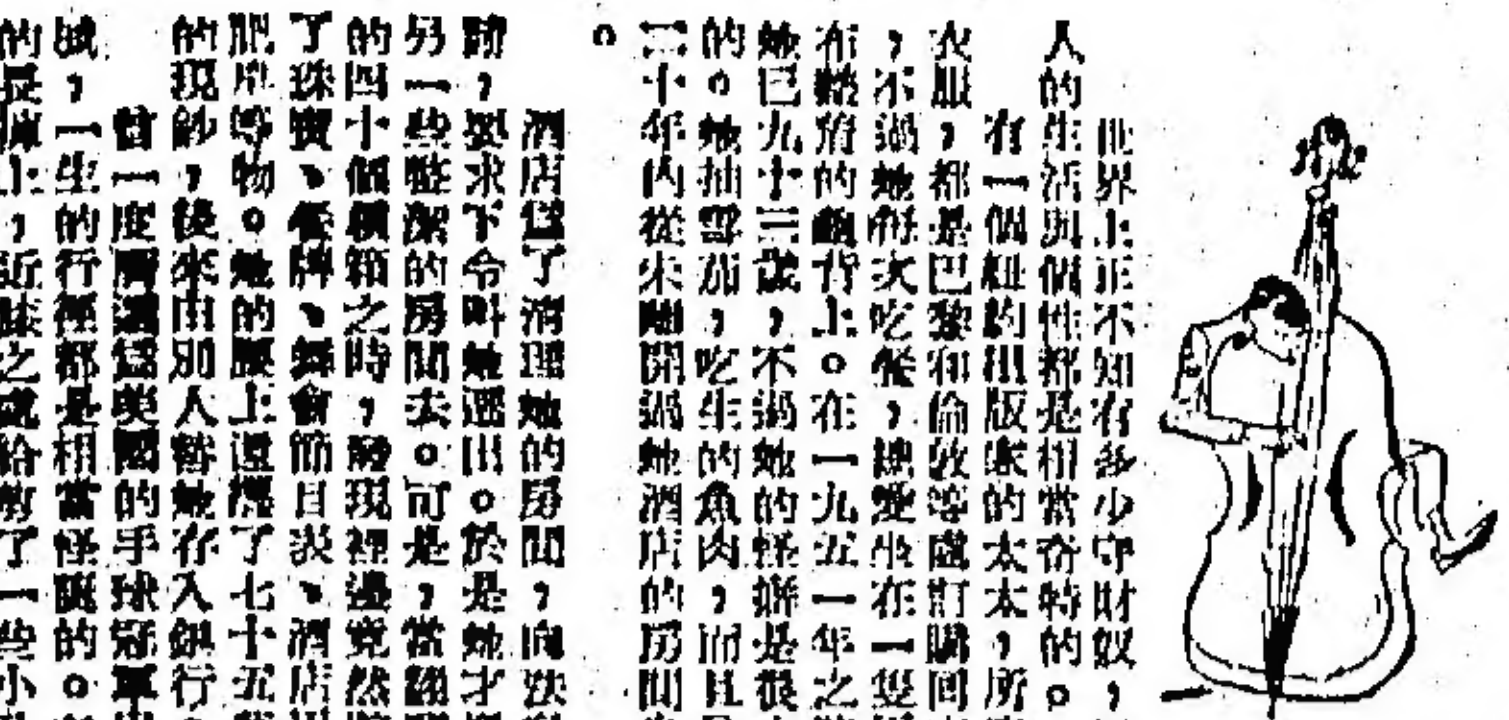 世界上正不知有多少守財奴，
人的生活與個性都是相當奇特的。
有一個紐約出版家的太太，所
衣服，都是巴黎和倫敦等處訂購回
，不過她每次吃餐，總愛坐在一隻
布 的龜背上。在一九五一年之
她已九十三歲，不過她的怪癖是很
的。她抽雪茄，吃生的魚肉，而且
二十年內從未離開過她酒店的房間
。
酒店為了清理她的房間，向
，要求下令叫她遷出。於是她才
另一些整潔的房間去。可是，當
的四十個 箱之時，發現裡邊竟然
了珠寶、餐牌、舞會節目表、酒店
肥皂等物。她的腰上還 了七十五
的現鈔，後來由別人替她存入銀行
曾一度 為美國的手球冠軍
，一生的行徑都是相當怪誕的。
的長 上，近 之處給 了一些小